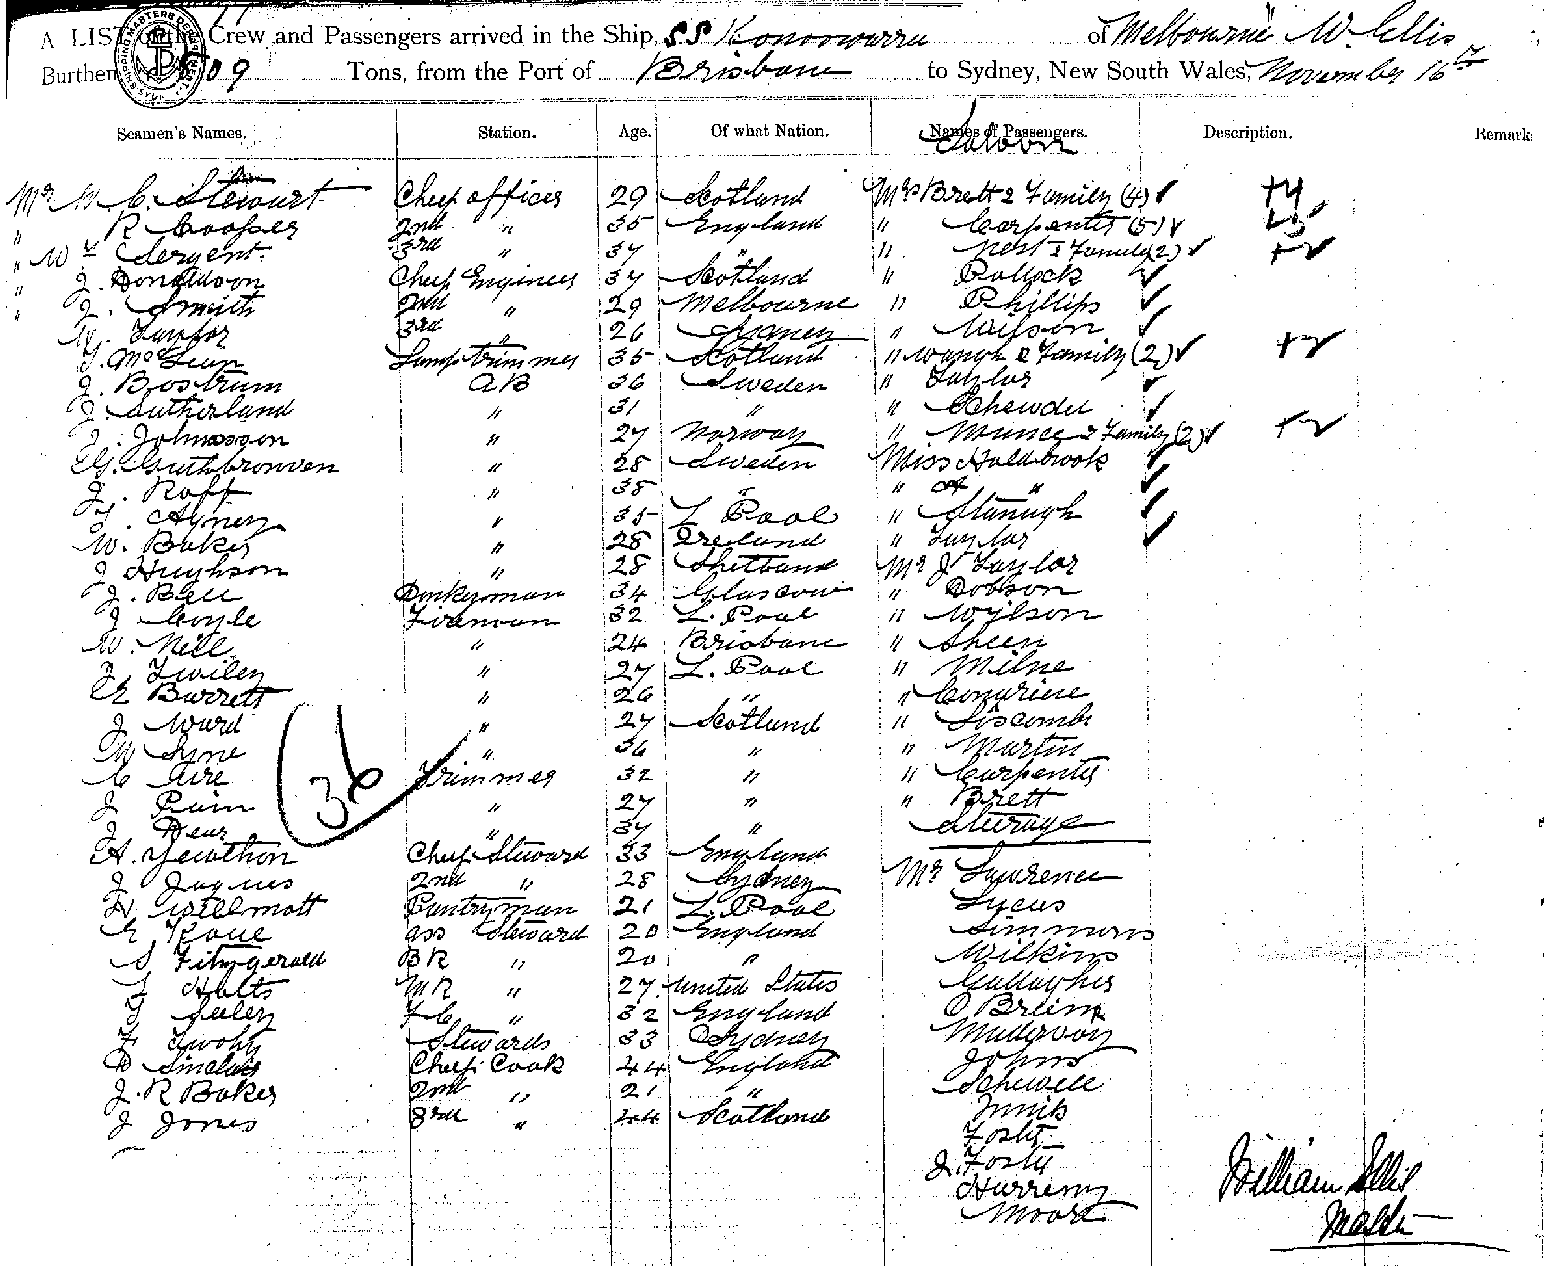 A LIST of the Crew and Passengers arrived in the Ship, SS Konoowarra of Melbourne W. Ellis
Burthen 09 Tons, from the Port of Brisbane to Sydney, New South Wales, November 16th
Seamen's Names. Station. Age. Of what Nation. Names of Passengers. Description. Remark
Saloon
Mr M. C. Stewart Chief officer 29 Scotland Mrs Brett & Family (4) ✓ +4
" R Cooper 2nd " 35 England " Carpenter (5) ✓
" Wm Sergent 3rd " 37 " " West & Family (2) ✓ +2
" J. Donaldson Chief Engineer 37 Scotland " Pollock ✓
" J. Smith 2nd " 29 Melbourne " Phillips ✓
W. Taylor 3rd " 26 Sydney " Wilson ✓
T. McLean Lamptrimmer 35 Scotland " Waugh & Family (2) ✓ +2
J. Bostrum AB 36 Sweden " Taylor ✓
J. Sutherland " 31 " " ✓
J. Johnsson " 27 Norway " Munce & Family (2) ✓ +2
G. " 28 Sweden Miss Holdbrook ✓
J. Roff " 38 " " " ✓
" 35 L Pool " ✓
W. Baker " 28 Ireland " Taylor ✓
J Hughson " 28 Shetland Mr J Taylor
J. Bell Donkeyman 34 Glascow " Dobson
J Coyle Fireman 32 L. Pool " Wylson
W. Neill " 24 Brisbane " Sheen
J. Twiley " 27 L. Pool " Milne
E Barrett " 26 " "
J Ward " 27 Scotland " Liscomb
M Lyne " 36 " " Martin
C Aire Trimmer 32 " " Carpenter
J " 27 " " Brett
J Dear " 37 " Steerage
36
A. Chief Steward 33 England
J Jaques 2nd " 28 Sydney Mr Lawrence
H Willmott Pantryman 21 L. Pool Lucus
E Rowe ass Steward 20 England Simmons
S Fitzgerald BR " 20 " Wilkins
L Holts MR " 27 United States Gallagher
J FC " 32 England O Brein
F Twohy Stewards 33 Sydney
D Sinclair Chief Cook 44 England Johns
J. R Baker 2nd " 21 "
J Jones 3rd " 44 Scotland
Foster
J. Foster
Moore
William Ellis
Master